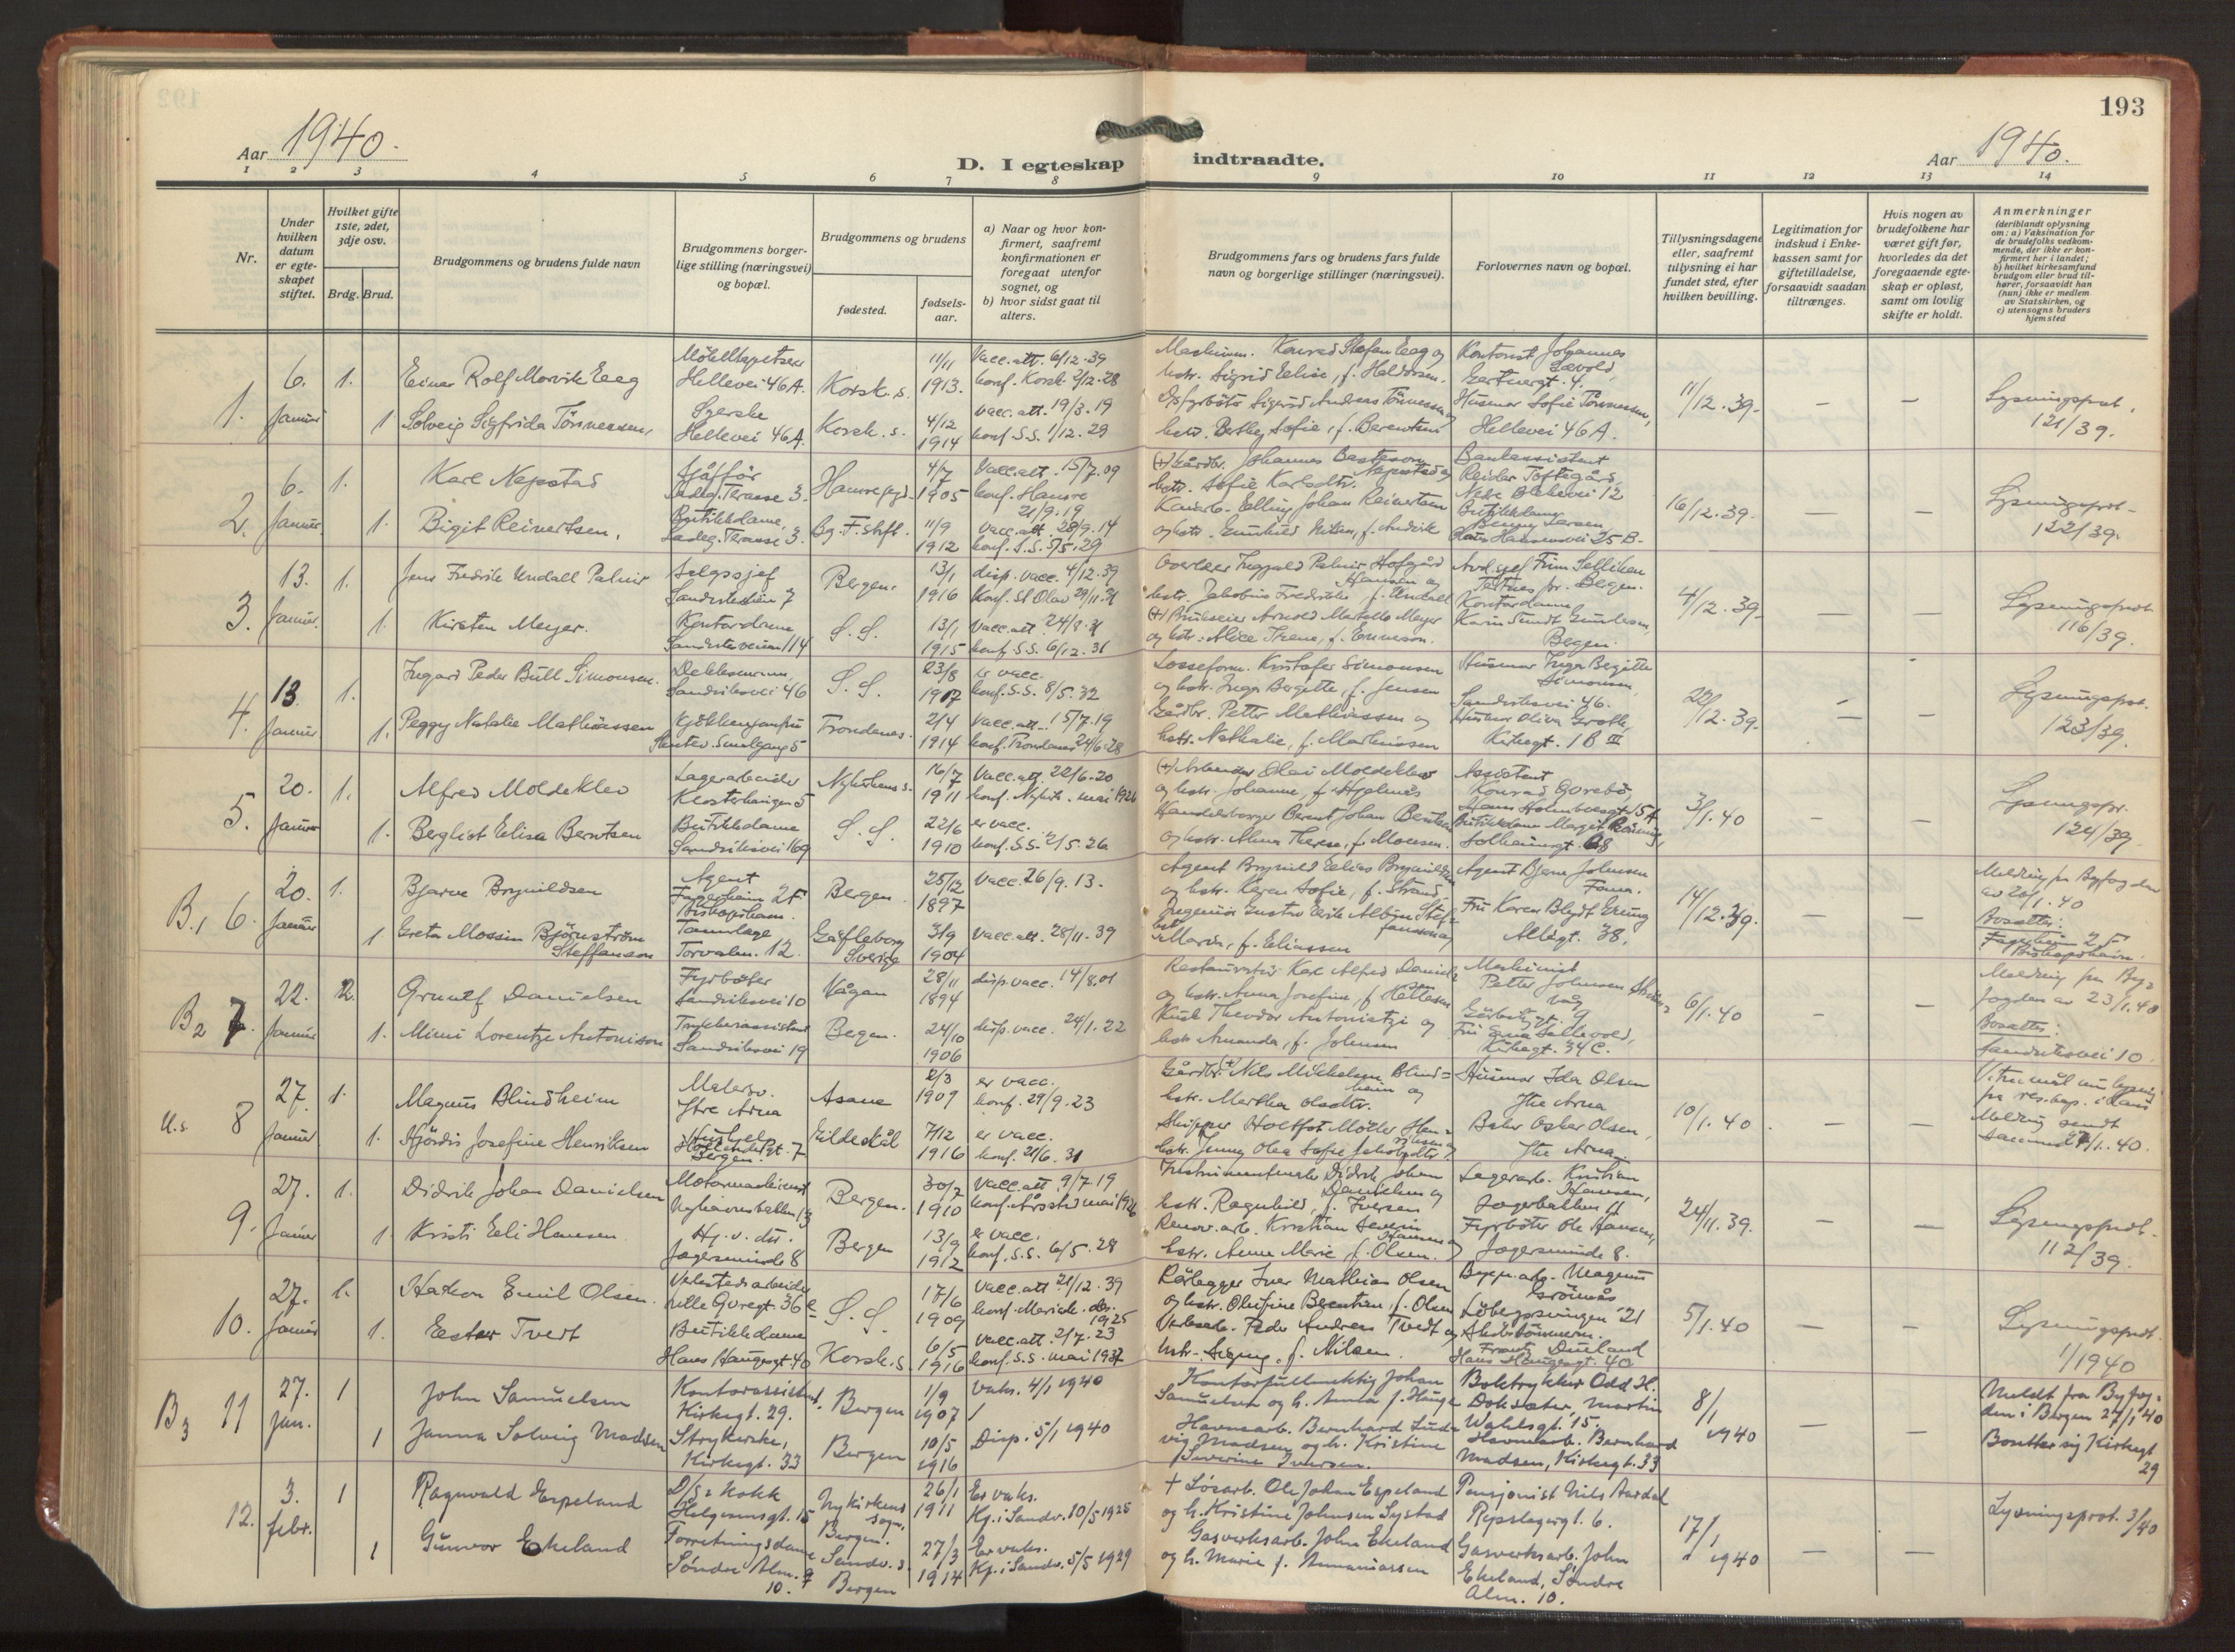 193
Aar 1940.
D. I egteskap indtraadte.
Aar 1940.
1 2 3 4 5 6 7 8 9 10 11 12 13 14
Nr.
Under hvilken datum er egteskapet stiftet.
Hvilket gifte 1ste, 2det, 3dje osv.
Brdg. Brud.
Brudgommens og brudens fulde navn
Brudgommens borgerlige stilling (næringsvei) og bopæl.
Brudgommens og brudens
fødested.
fødselsaar.
a) Naar og hvor konfirmert, saafremt konfirmationen er foregaat utenfor sognet, og
b) hvor sidst gaat til alters.
Brudgommens fars og brudens fars fulde navn og borgerlige stillinger (næringsvei).
Forlovernes navn og bopæl.
Tillysningsdagene eller, saafremt tillysning ei har fundet sted, efter hvilken bevilling.
Legitimation for indskud i Enkekassen samt for giftetilladelse, forsaavidt saadan tiltrænges.
Hvis nogen av brudefolkene har været gift før, hvorledes da det foregaaende egteskap er opløst, samt om lovlig skifte er holdt.
Anmerkninger
(deriblandt oplysning om: a) Vaksination for de brudefolks vedkommende, der ikke er konfirmert her i landet;
b) hvilket kirkesamfund brudgom eller brud tilhører, forsaavidt han (hun) ikke er medlem av Statskirken, og
c) utensogns bruders hjemsted
1. 6. Januar 1. Einar Rolf Morvik Eeg
Hellevei 46A. Korsk. s. 11/11 1913. Vacc. att. 6/12.39
konf. Korsk. 2/12.28
1 Solveig Sigfrida Tönnessen,
Hellevei 46A. Korsk. s. 4/12 1914 Vacc. att. 19/3.19
konf. S.S. 1/12.29
hstr. Sigrid Elise, f. Haldorsen.
Kontorist Johannes
Gartnergt. 4.
Husmor Sofie Tönnessen,
Hellevei 46A.
11/12.39. — — Lysningsprot. 121/39.
2. 6. Januar 1. Karl Nepstad
Sjåfför
Ladeg. Terasse 3. 4/7 1905 Vacc. att. 15/7.09
konf. Hamre 21/9.19
1. Birgit Reinertsen,
Butikkdame,
Ladeg. Terasse 3. Bg. F. stift. 11/9 1912 Vacc. att. 28/9.14
konf. S.S. 5/5.29
(+) Gårdbr. Johannes Bastesen Nepstad og
hstr. Sofie Karlsdtr.
Bankassistent
Reidar Toftegård,
Nedre Blekevei 12
Butikkdame
Hans Hauges vei 25 B.
16/12.39. — — Lysningsprot. 122/39.
3. 13. Januar. 1. Jens Fredrik Undall Palmer
Salgssjef
Bergen. 13/1 1916 disp. vacc. 4/12.39
Konf. St Olav 29/11.31
1. Kirsten Meyer.
Kontordame
Sandviksveien 114 S. S. 13/1 1915 Vacc. att. 24/8.31
konf. S.S. 6/12.31
(+) Bruksier Arnold Martello Meyer
og hstr. Alice Irene, f.
Kontordame
Bergen.
4/12.39. Lysningsprot. 116/39.
4. 13. Januar 1. Ingard Peder Bull Simonsen.
Dekksmann,
Sandviksvei 46 S. S. 23/8 1907 er vacc.
konf. S.S. 8/5.32
1. Peggy Natalie Mathiassen
Kjökkenjomfru
Trondenes. 2/4 1914 Vacc. att. 15/7.19
konf. Trondenes 24/6.28
Losseform. Kristofer Simonsen
og hstr. Inga Bergitte, f. Jensen
Gårdbr. Petter Mathiassen og
hstr. Nathalie, f. Martinussen
Husmor Inga Bergitte Simonsen,
Sandviksvei 46.
Husmor Oliva Groth,
Kirkegt. 1B III
22/12.39. — — Lysningsprot. 123/39.
5. 20. Januar 1. Alfred Moldeklev
Lagerarbeider
Klosterhaugen 5 Nykirkens s. 16/7 1911 Vacc. att. 22/6.20
konf. Nykirk. mai 1926
1. Bergliot Elisa Berntsen
Butikkdame
Sandviksvei 169 S. S. 22/6 1910 er vacc.
konf. S.S. 2/5.26
(+) Arbeider Olai Moldeklev
og hstr. Johanne, f. Hjelmås
Handelsborger Bernt Johan Berntsen
og hstr. Anna Therese, f. Monsen.
Assistent
Konrad Garebö,
Hans Holmboesgt. 15A
Solheimsgt. 68
3/1.40 — — Lysningspr. 124/39.
B.1 6. 20. Januar 1. Bjarne Brynildsen
Agent
Fagerheim 25
Biskopshavn. Bergen 25/12 1897 Vacc. 26/9.13.
1 Greta Mossin Björnström Steffanson
Tannlege
Torvalm. 12. Gäfleborg Sverige 3/9 1904 Vacc. att. 28/11.39
Agent Brynild Elias Brynildsen
og hstr. Karen Sofie, f. Strand
Ingeniör Gustav Erik Albin Steffansson og
hstr. Maria, f. Eliassen
Agent Bjarne Johnsen
Fana.
Fru Karen Blydt Grung
Allégt. 38.
14/12.39. — — Melding fra Byfogden
av 20/1.40
Bosatte:
Fagerheim 25
Biskopshavn.
B2 7. 22. Januar 2. Grunolf Danielsen
Fyrböter
Sandviksvei 10 Vågan 28/11 1894 disp. vacc. 14/8.01
1. Mimi Lorentze Antonisen
Sandviksvei 19 Bergen. 24/10 1906 disp. vacc. 24/1.22
Restauratör Karl Alfred Danielsen
Kusk Theodor Antonietzi og
hstr. Amanda, f. Johnsen
Maskinist
Kirkegt. 34C.
6/1.40 — Melding fra Byfogden av 23/1.40
Bosatte:
Sandviksvei 10.
U.s. 8 27. Januar 1. Magnus Blindheim
Malersv.
Ytre Arna Åsane 2/3 1909 er vacc.
konf. 29/9.23
1. Hjördis Josefine Henriksen
Bergen. Gildeskål 7/12 1916 er vacc.
konf. 21/6.31
Gårdbr. (+) Nils Mikkelsen Blindheim og
hstr. Martha Olsdtr.
Skipper Holtfot Möller Henriksen og
hstr. Jenny Olea Sofie Jakobsdtr.
Husmor Ida Olsen
Ytre Arna
Baker Oskar Olsen,
Ytre Arna.
10/1.40. — —
9. 27. Januar 1. Didrik Johan Danielsen
Motormaskinist
Nyhavnsbakken 13 Bergen. 30/7 1910 Vacc. att. 9/7.19
konf. Årstad mai 1926
1. Kristi Eli Hansen.
Hj. v. det.
Jægersminde 8 Bergen 13/9 1912 er vacc.
konf. S.S. 6/5.28
Instrumentmaker Didrik Johan Danielsen og
hstr. Ragnhild, f. Iversen
Renov. arb. Kristian Severin Hansen og
hstr. Anna Marie f. Olsen.
Lagerarb. Kristian Hansen,
Jægerbakken 11
Fyrböter Ole Hansen,
Jægersminde 8.
24/11.39. — — Lysningsprot. 112/39.
10. 27. Januar 1. Haakon Emil Olsen.
Verkstedsarbeider
S. S. 17/6 1909 Vacc. att. 21/12.39
1925
1. Ester Tvedt
Butikkdame
Hans Haugesgt. 40 Korsk. s. 6/5 1916 Vacc. att. 2/7.23
konf. S.S. mai 1931
Rörlegger Iver Mathias Olsen
og hstr. Olufine Berntine, f. Olsen
Verkst.arb. Peder Andreas Tvedt og
hstr. Signy, f. Nilsen.
Bygn. arb. Magnus
Löbergsveingen 21
Hans Haugesgt. 40
5/1.40 — — Lysningsprot. 1/1940
B3 11 27. jan. 1 John Samuelsen
Kontorassistent.
Kirkegt. 29. Bergen 1/9 1907 Vaks. 4/1 1940
1 Janna Solveig Madsen
Strykerske,
Kirkegt. 33 Bergen 10/5 1916 Disp. 5/1 1940
Kontorfullmektig Johan
Samuelsen og h. Anna f. Hauge
Havnearb. Bernhard Ludvig Madsen og h. Kristine
Severine Iversen.
Boktrykker Odd H.
Doksæter, Martin
Wahlsgt. 15.
Havnearb. Bernhard
Madsen, Kirkegt. 33
8/1 1940 — — Meldt fra Byfogden i Bergen 27/1 40
Bosetter sig Kirkegt 29
12. 3. febr. 1 Ragnvald Espeland
D/S: Kokk
Helgesensgt. 15 Nykirkens sogn, Bergen. 26/1 1911 Er vaks.
Kf. i Sandv. 10/5 1925
1 Gunvor Ekeland
Forretningsdame
Søndre Alm. 10. Sandv. s. Bergen 27/3 1914 Er vaks.
Kf. i Sandv. 5/5 1929
+ Løsarb. Ole Johan Espeland
og h. Kristine Johnsen Systad
Gasverksarb. John Ekeland
og h. Marie f. Annaniassen
Pensjonist Nils Aardal
Repslagergt. 6.
Gasverksarb. John
Ekeland, Søndre
Alm. 10.
17/1 1940 — — Lysningsprot. 3/40